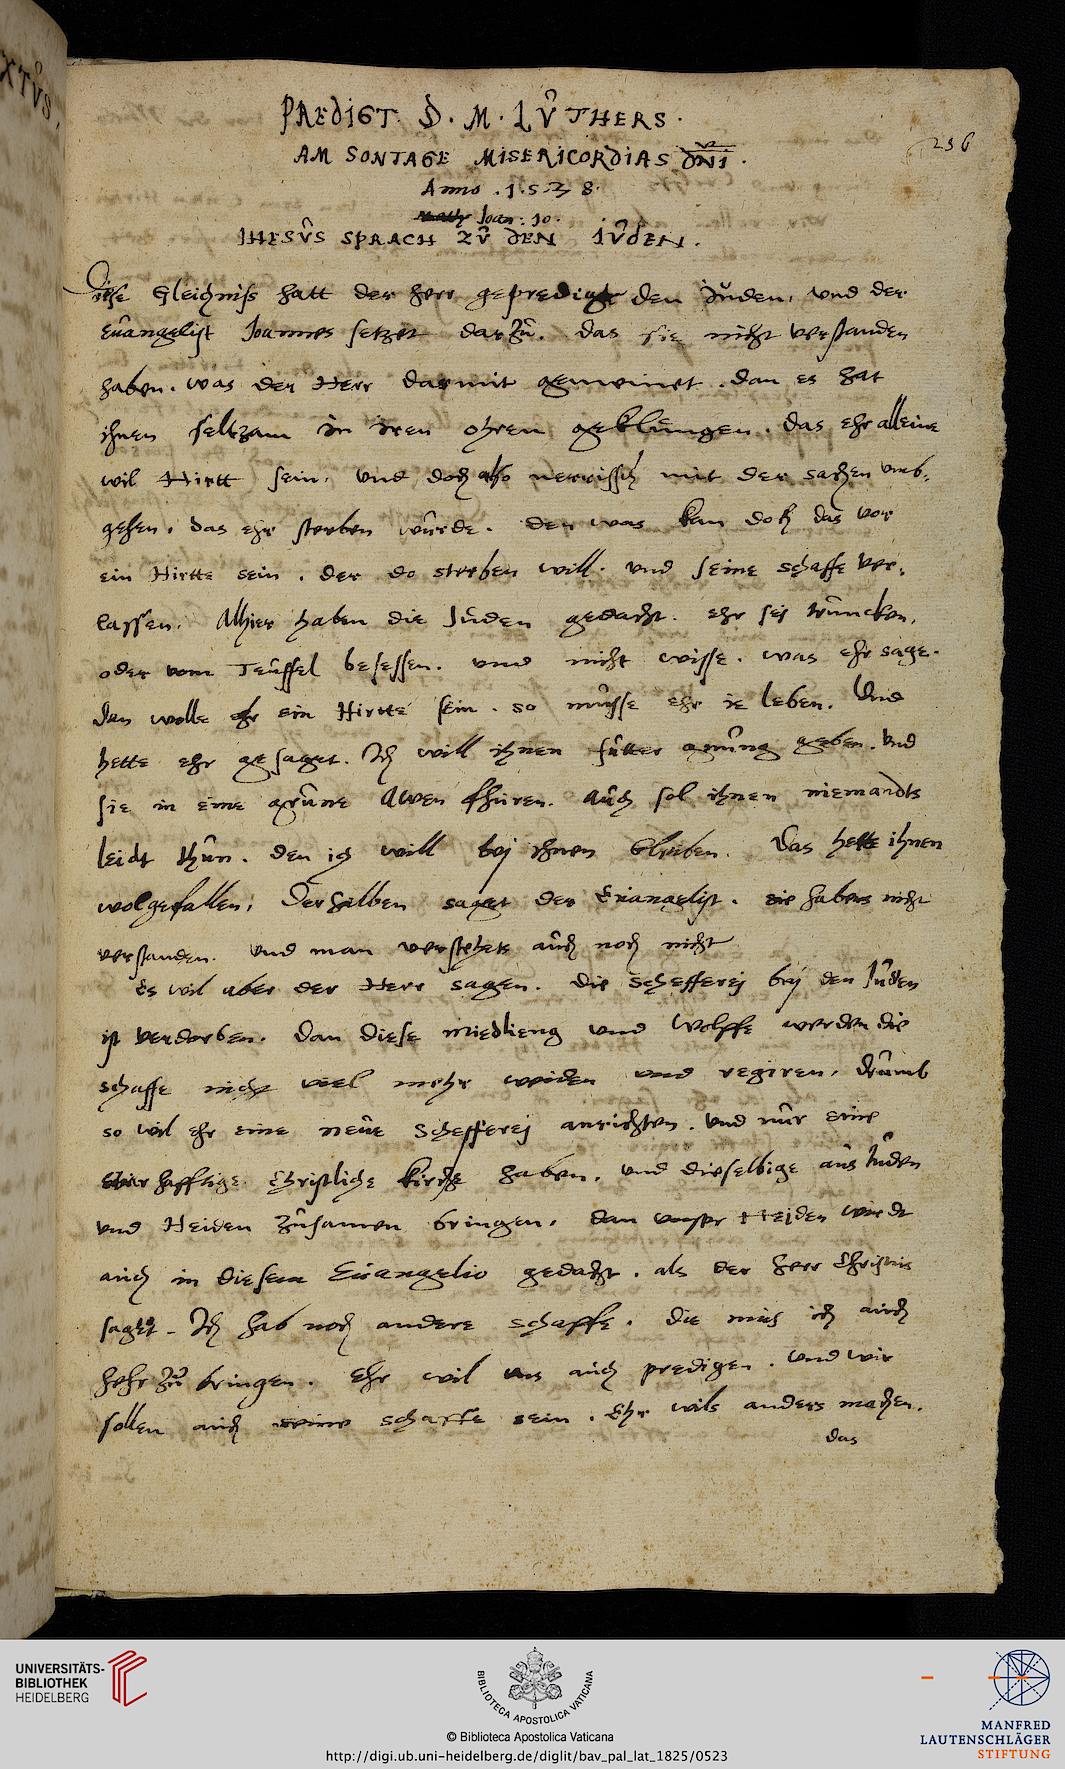 XTVS.
256
PREDIGT. D. M. LVTHERS.
AM SONTAGE MISERICORDIAS DNI.
Anno. 1.5.3 8.
Joan: 10.
IHESVS SPRACH ZV DEN IVDEN.
Diese Gleichniss hatt der herr gepredigt den Juden, und der
Euangelist Joannes setzet darzu. das sie nicht verstanden
haben. was der Herr darmit gemeinet. dan es hat
ihnen seltzam in iren ohren geklungen. das ehr alleine
wil Hirtt sein, und doch also nerrisch mit der sachen umb-
gehen, das ehr sterben wurde. den was kan doch das vor
ein Hirtte sein. der do sterben will. und seine schaffe ver-
lassen. Alhier haben die Juden gedacht. ehr sej truncken,
oder vom Teuffel besessen. und nicht wisse. was ehr sage.
dan wolle ehr ein Hirtte sein. so musse ehr ie leben. Und
hette ehr gesaget. Ich will ihnen futter gnung geben. Und
sie in eine grune Awen fhuren. Auch sol ihnen niemandts
leidt thun. den ich will bej ihnen bleiben. Das hette ihnen
wolgefallen, Derhalben saget der Euangelist. sie habens nicht
verstanden. und man verstehets auch noch nicht
Es wil aber der Herr sagen. die schefferej bej den Juden
ist verdorben. dan diese Miedlieng und Wolffe werden die
schaffe nicht viel mehr weiden und regiren, drumb
so wil ehr eine neue Schefferej anrichten. und nur eine
warhafftige Christliche kirche haben, und dieselbige aus Juden
und Heiden zusamen bringen, dan unser Heiden wirdt
auch in diesem Euangelio gedacht. als der herr Christus
saget. Ich hab noch andere schaffe. die mus ich auch
hehr zu bringen. Ehr wil uns auch predigen. und wir
sollen auch seine schaffe sein. Ehr wils anders machen.
das
UNIVERSITÄTS-
BIBLIOTHEK
HEIDELBERG
BIBLIOTECA APOSTOLICA VATICANA
© Biblioteca Apostolica Vaticana
http://digi.ub.uni-heidelberg.de/diglit/bav_pal_lat_1825/0523
MANFRED
LAUTENSCHLÄGER
STIFTUNG